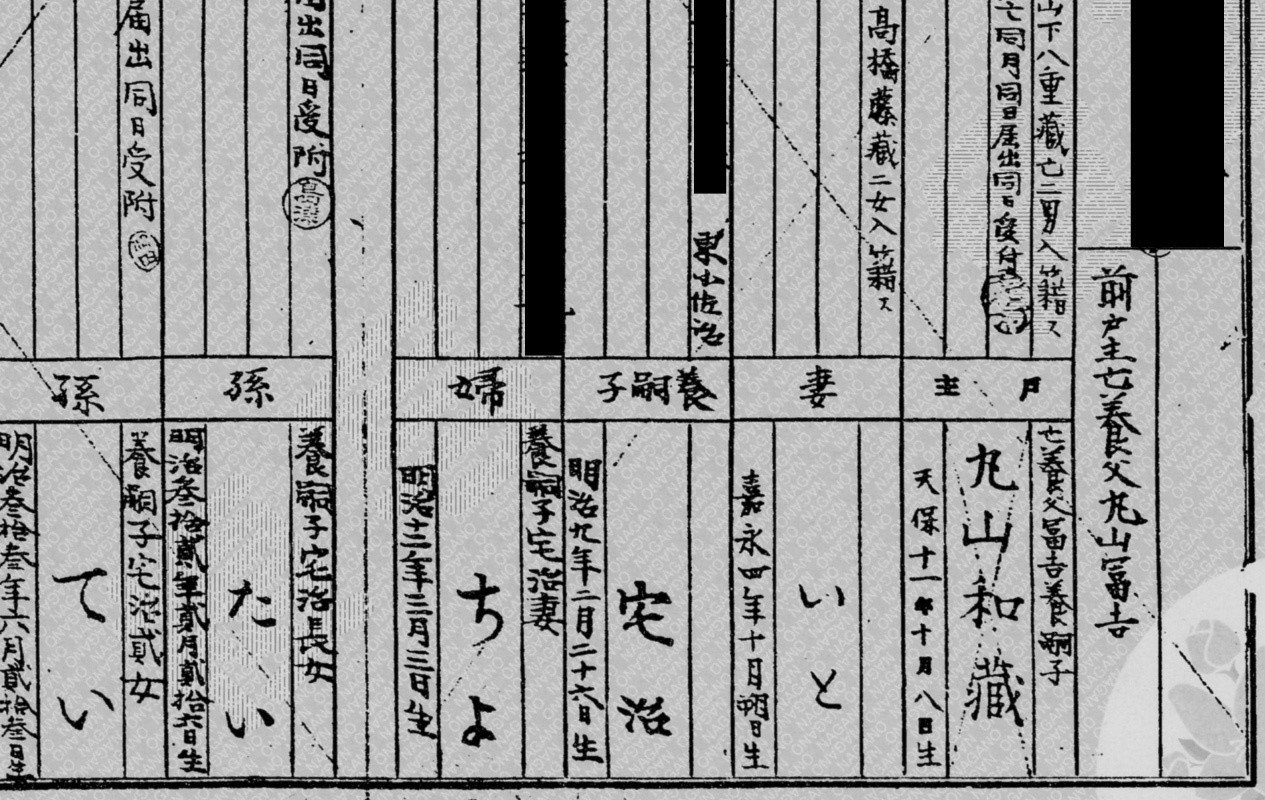 前戸主亡養父丸山冨吉
山下八重藏亡二男入籍ス
亡同月同日届出同日受付
戸主
亡養父冨吉養嗣子
丸山和藏
天保十一年十月八日生
高橋藤藏二女入籍ス
妻
いと
嘉永四年十月朔日生
東山佐治
養嗣子
宅治
明治九年二月二十六日生
婦
養嗣子宅治妻
ちよ
明治十二年三月三日生
届出同日受附
孫
養嗣子宅治長女
たい
明治叁拾貳年貳月貳拾六日生
届出同日受附
孫
養嗣子宅治貳女
てい
明治叁拾叁年六月貳拾叁日生